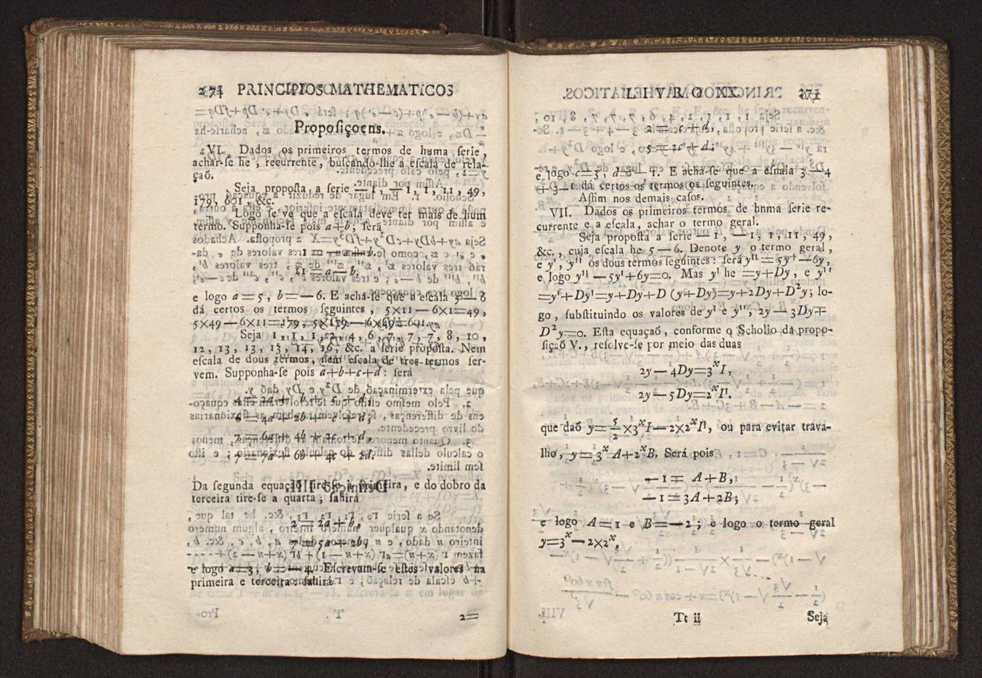 274 PRINCIPIOS MATHEMATICOS
Proposiçoens.
VI. Dados os primeiros termos de huma serie,
achar-se he, recurrente, buscando-lhe a escala de rela-
çaõ.
Seja proposta, a serie — 1, — 1, 1, 11, 49,
179, 601, &c.
Logo se vê que a escala deve ter mais de hum
termo. Supponha-se pois a+b; será
11=a—b,
e logo a=5, b=—6. E acha-se que a escala 5—6
dá certos os termos seguintes, 5×11—6×1=49,
5×49—6×11=179, 5×179—6×49=601.
Seja 1, 1, 1, 2, 4, 6, 7, 7, 7, 8, 10,
12, 13, 13, 13, 14, 16, &c. a serie proposta. Nem
escala de dous termos, nem escala de tres termos ser-
vem. Supponha-se pois a+b+c+d: será
6=4a+2b+c+d,
7=6a+4b+2c+d,
7=7a+6b+4c+2d.
Da segunda equaçaõ tire-se a primeira, e do dobro da
terceira tire-se a quarta; sahirá
2=2a+b,
7=5a+2b,
e logo a=3, b=—4. Escrevam-se estes valores na
primeira e terceira: sahirá
2=
LIVRO XX. 275
2=c+d,
5=1c+d;
e logo c=3, d=—1. E acha-se que a escala 3—4
+3—1 dá certos os termos os seguintes.
Assim nos demais casos.
VII. Dados os primeiros termos de huma serie re-
currente e a escala, achar o termo geral.
Seja proposta a serie — 1, — 1, 1, 11, 49,
&c., cuja escala he 5—6. Denote y o termo geral,
e y', y'' os dous termos seguintes: será y''=5y'—6y,
e logo y''—5y'+6y=0. Mas y' he =y+Dy, e y''
=y'+Dy'=y+Dy+D (y+Dy)=y+2Dy+D²y; lo-
go, substituindo os valores de y' e y'', 2y—3Dy+
D²y=0. Esta equaçaõ, conforme o Scholio da propo-
siçaõ V., resolve-se por meio das duas
2y—4Dy=3ˣI,
2y—5Dy=2ˣI'.
que daõ y=5/2×3ˣI—2×2ˣI', ou para evitar traba-
lho, y=3ˣA+2ˣB. Será pois
—1=A+B,
—1=3A+2B;
e logo A=1 e B=—2; e logo o termo geral
y=3ˣ—2×2ˣ.
Tt ii Seja